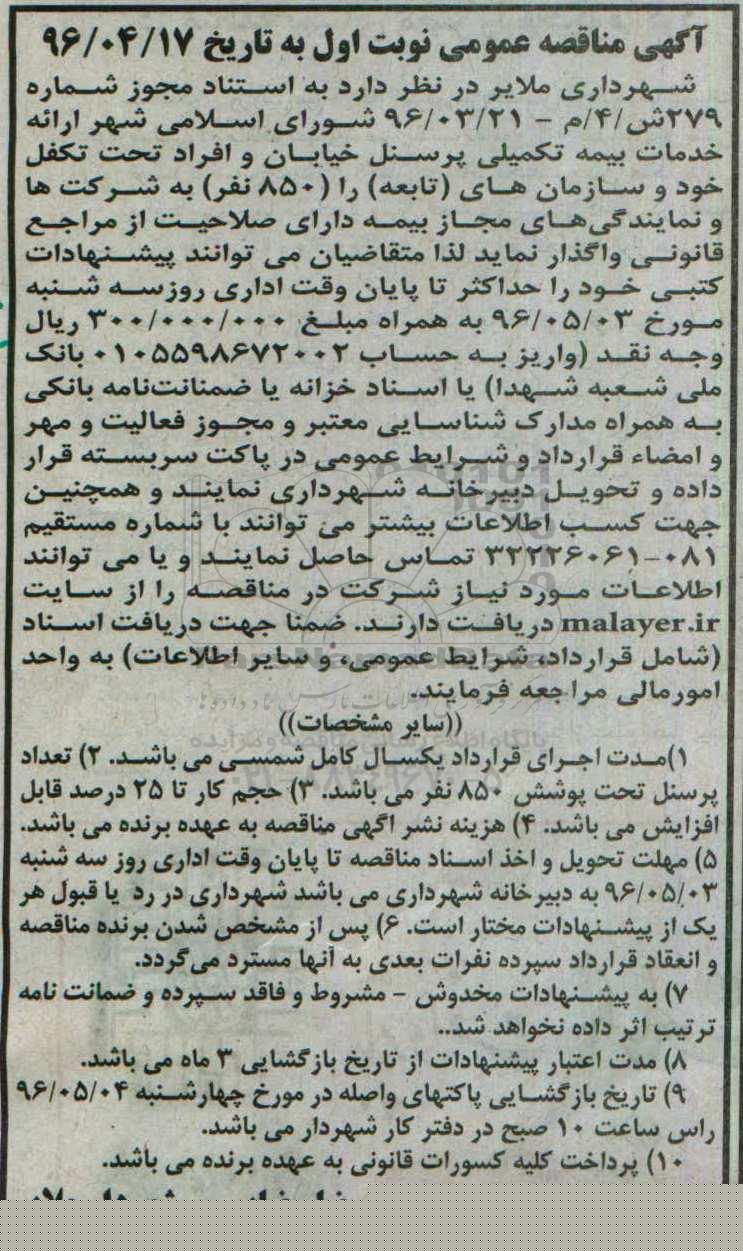 آگهی مناقصه عمومی نوبت اول به تاریخ ۹۶/۰۴/۱۷
شهرداری ملایر در نظر دارد به استناد مجوز شماره
۲۷۹ش/۴/م – ۹۶/۰۳/۲۱ شورای اسلامی شهر ارائه
خدمات بیمه تکمیلی پرسنل خیابان و افراد تحت تکفل
خود و سازمان های (تابعه) را (۸۵۰ نفر) به شرکت ها
و نمایندگی‌های مجاز بیمه دارای صلاحیت از مراجع
قانونی واگذار نماید لذا متقاضیان می توانند پیشنهادات
کتبی خود را حداکثر تا پایان وقت اداری روزسه شنبه
مورخ ۹۶/۰۵/۰۳ به همراه مبلغ ۳۰۰/۰۰۰/۰۰۰ ریال
وجه نقد (واریز به حساب ۰۱۰۵۵۹۸۶۷۲۰۰۲ بانک
ملی شعبه شهدا) یا اسناد خزانه یا ضمنانت‌نامه بانکی
به همراه مدارک شناسایی معتبر و مجوز فعالیت و مهر
و امضاء قرارداد و شرایط عمومی در پاکت سربسته قرار
داده و تحویل دبیرخانه شهرداری نمایند و همچنین
جهت کسب اطلاعات بیشتر می توانند با شماره مستقیم
۰۸۱-۳۲۲۲۶۰۶۱ تماس حاصل نمایند و یا می توانند
اطلاعات مورد نیاز شرکت در مناقصه را از سایت
malayer.ir دریافت دارند. ضمنا جهت دریافت اسناد
(شامل قرارداد، شرایط عمومی، و سایر اطلاعات) به واحد
امورمالی مراجعه فرمایند.
((سایر مشخصات))
۱)مدت اجرای قرارداد یکسال کامل شمسی می باشد. ۲) تعداد
پرسنل تحت پوشش ۸۵۰ نفر می باشد. ۳) حجم کار تا ۲۵ درصد قابل
افزایش می باشد. ۴) هزینه نشر اگهی مناقصه به عهده برنده می باشد.
۵) مهلت تحویل و اخذ اسناد مناقصه تا پایان وقت اداری روز سه شنبه
۹۶/۰۵/۰۳ به دبیرخانه شهرداری می باشد شهرداری در رد یا قبول هر
یک از پیشنهادات مختار است. ۶) پس از مشخص شدن برنده مناقصه
و انعقاد قرارداد سپرده نفرات بعدی به آنها مسترد می‌گردد.
۷) به پیشنهادات مخدوش – مشروط و فاقد سپرده و ضمانت نامه
ترتیب اثر داده نخواهد شد..
۸) مدت اعتبار پیشنهادات از تاریخ بازگشایی ۳ ماه می باشد.
۹) تاریخ بازگشایی پاکتهای واصله در مورخ چهارشنبه ۹۶/۰۵/۰۴
راس ساعت ۱۰ صبح در دفتر کار شهردار می باشد.
۱۰) پرداخت کلیه کسورات قانونی به عهده برنده می باشد.